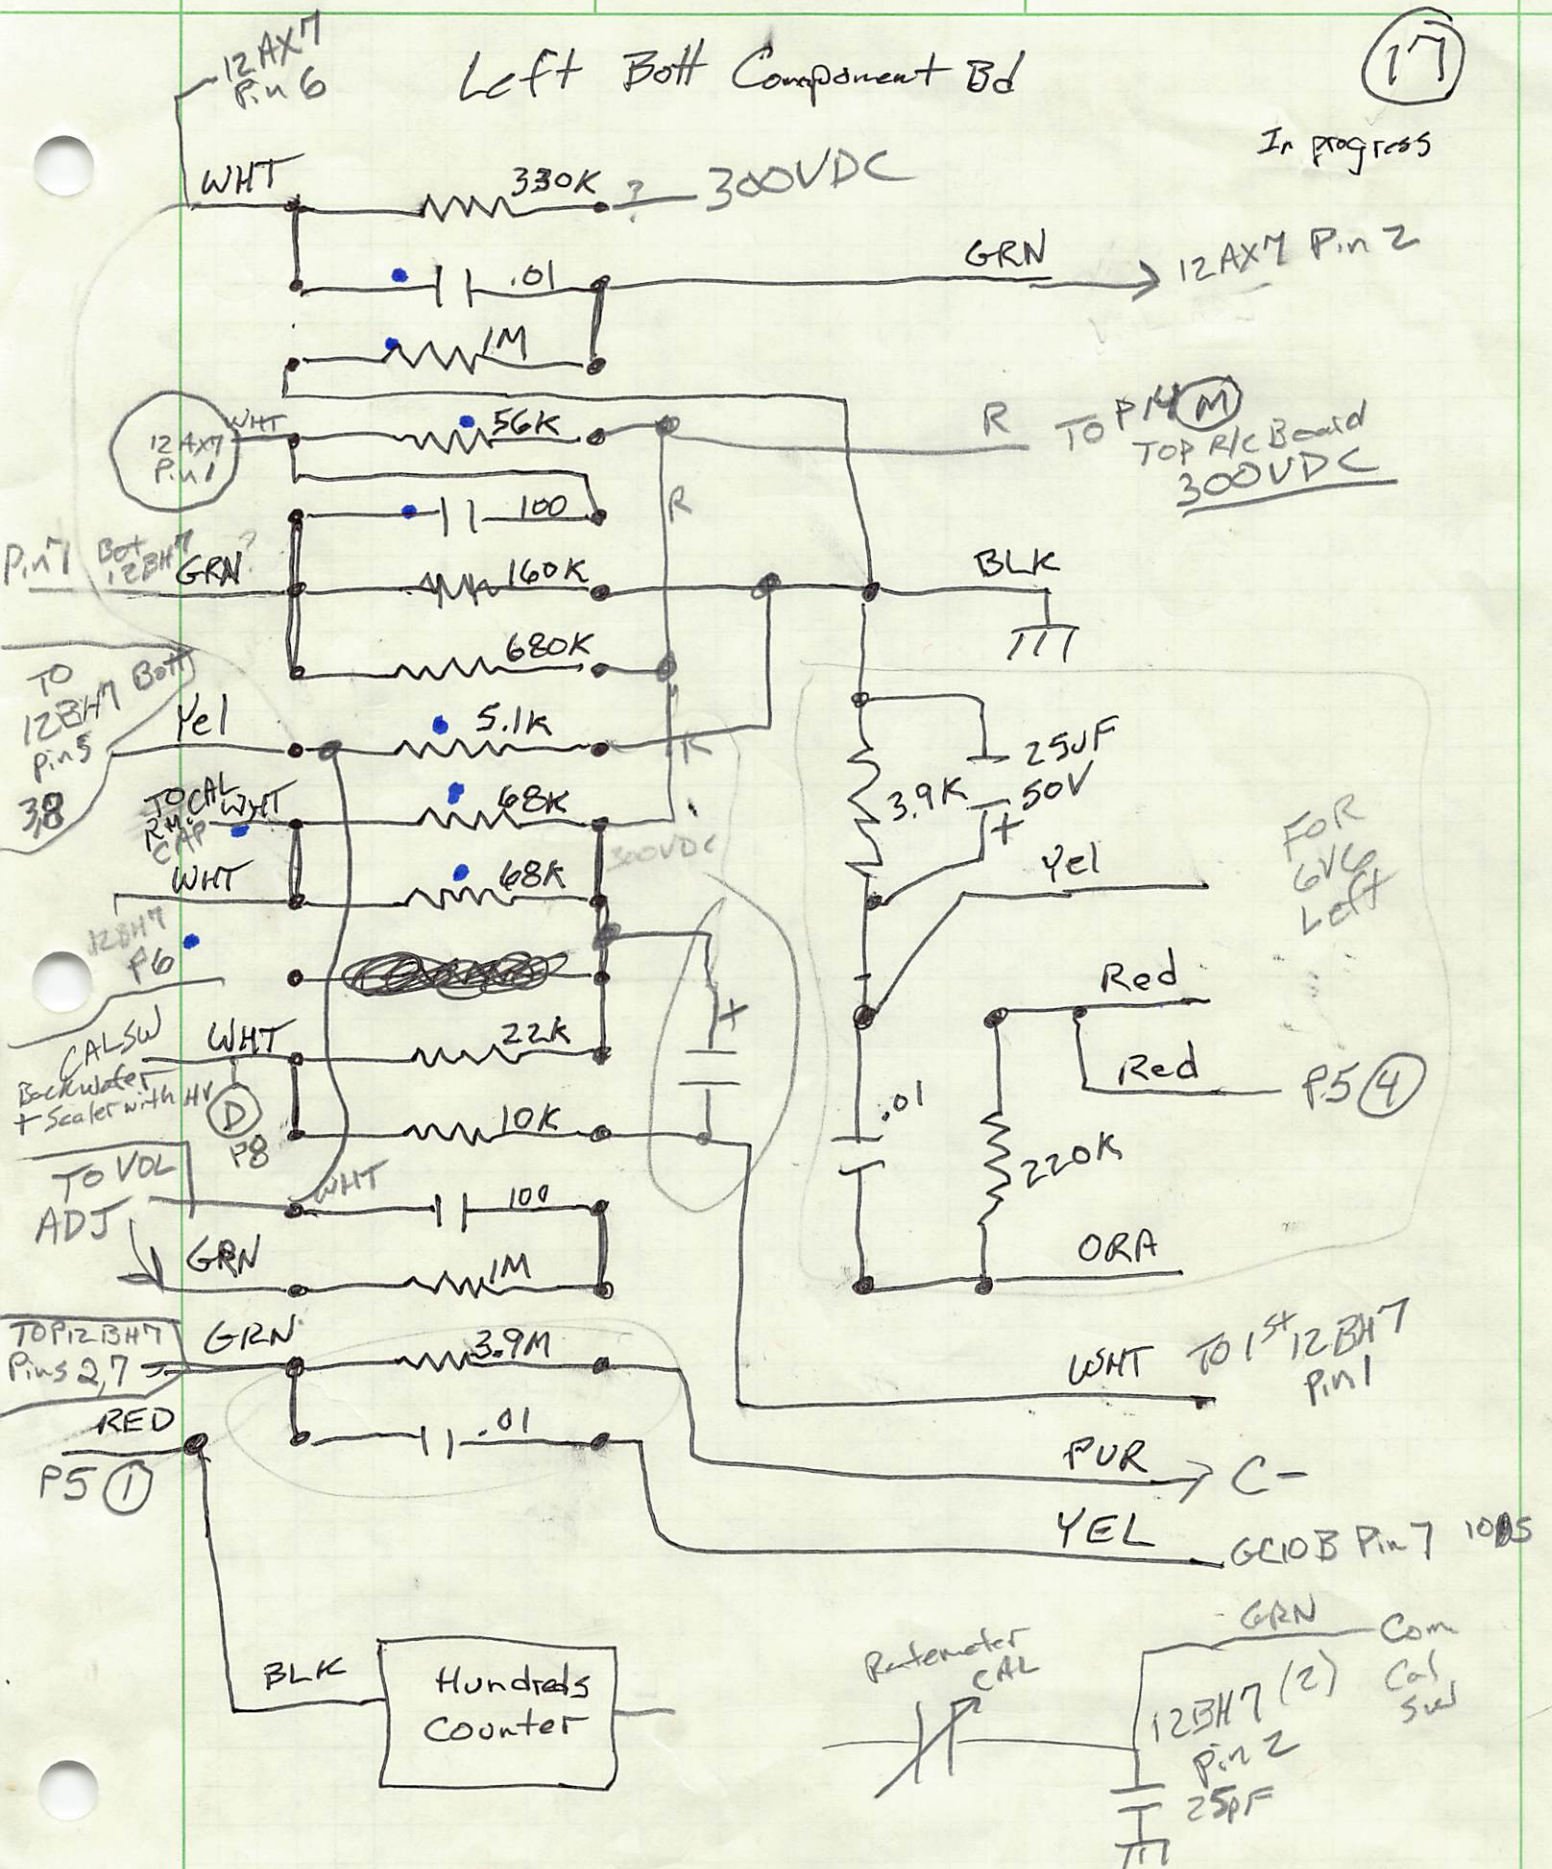 12AX7
Pin 6
Left Bott Component Bd
17
In progress
WHT
330K
?
300VDC
.01
GRN
12AX7 Pin 2
1M
12AX7
Pin 1
WHT
56K
R
TO P14 M
TOP R/C Board
300VDC
R
100
Pin 1
Bot
12BH7
GRN
?
160K
BLK
680K
TO
12BH7 Bott
pin 5
3,8
Yel
5.1K
R
TO CAL
CAP
WHT
68K
300VDC
WHT
68K
12BH7
P6
3.9K
25UF
50V
+
Yel
FOR
6V6
Left
CALSW
Backwafer
+ Scaler with HV
WHT
D
P8
22K
+
Red
Red
P5 4
10K
.01
220K
TO VOL
ADJ
WHT
100
GRN
1M
ORA
TOP 12BH7
Pins 2,7
GRN
3.9M
WHT
TO 1st 12BH7
pin 1
RED
P5 1
.01
PUR
C-
YEL
GC10B Pin 7
BLK
Hundreds
Counter
Ratemeter
CAL
GRN
Com
Cal
SW
12BH7 (2)
Pin 2
25pF